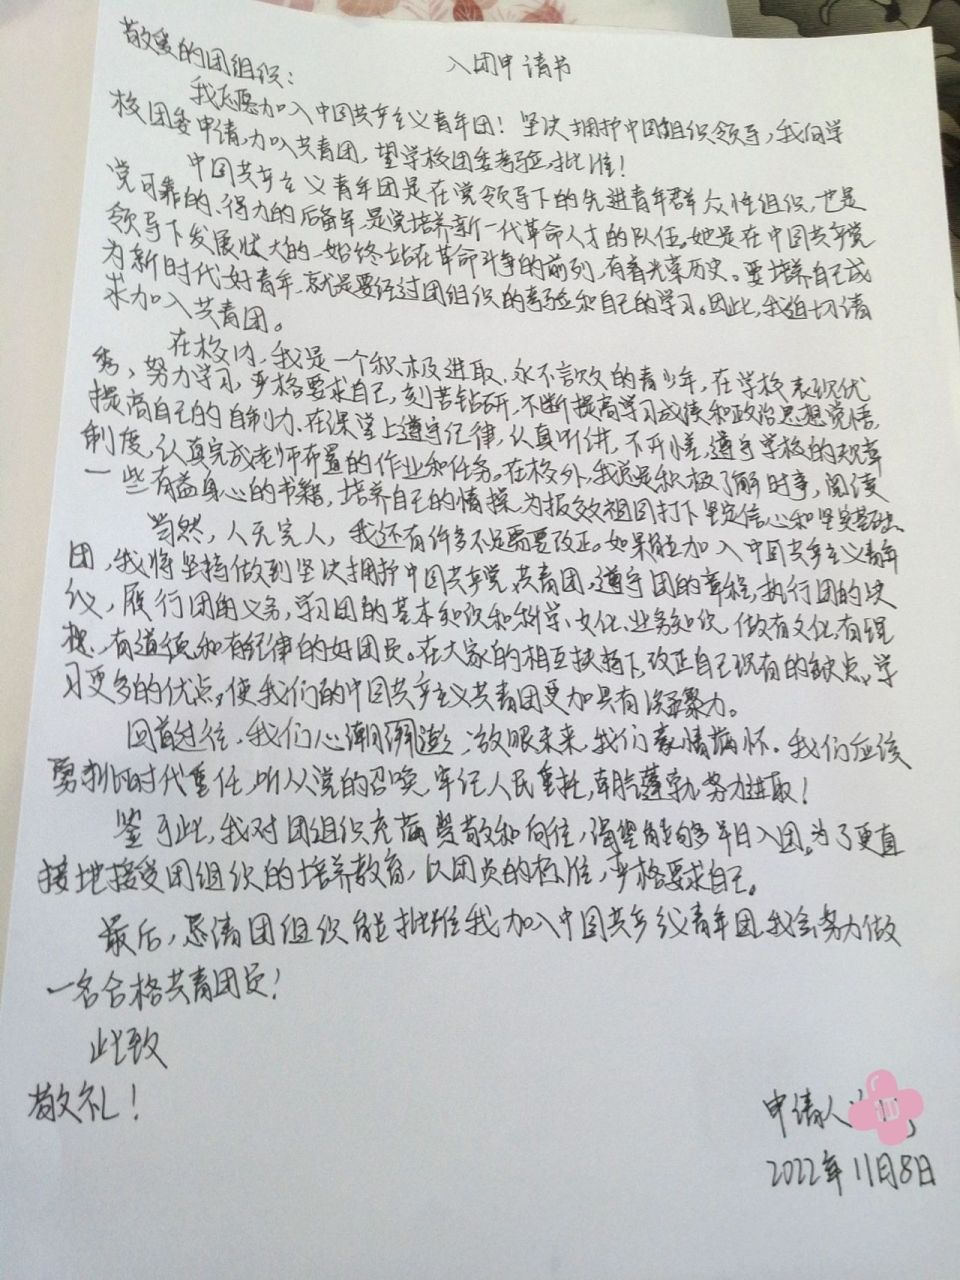 入团申请书
敬爱的团组织：
我志愿加入中国共产主义青年团！坚决拥护中国组织领导，我向学
校团委申请，加入共青团，望学校团委考验，批准！
中国共产主义青年团是在党领导下的先进青年群众性组织，也是
党可靠的、得力的后备军，是党培养新一代革命人才的队伍。她是在中国共产党
领导下发展壮大的，始终站在革命斗争的前列，有着光荣历史。要培养自己成
为新时代好青年，就是要经过团组织的考验和自己的学习。因此，我迫切请
求加入共青团。
在校内，我是一个积极进取、永不言败的青少年，在学校表现优
秀，努力学习，严格要求自己，刻苦钻研，不断提高学习成绩和政治思想觉悟，
提高自己的自制力、在课堂上遵守纪律，认真听讲，不开小差，遵守学校的规章
制度，认真完成老师布置的作业和任务。在校外，我总是积极了解时事，阅读
一些有益身心的书籍，培养自己的情操，为报效祖国打下坚定信心和坚实基础。
当然，人无完人，我还有许多不足需要改正。如果能加入中国共产主义青年
团，我将坚持做到坚决拥护中国共产党、共青团，遵守团的章程，执行团的决
议，履行团员义务，学习团的基本知识和科学、文化、业务知识，做有文化、有理
想、有道德和有纪律的好团员。在大家的相互扶持下，改正自己现有的缺点，学
习更多的优点，使我们的中国共产主义共青团更加具有凝聚力。
回首过往，我们心潮澎，放眼未来，我们豪情满怀。我们应该
勇挑时代重任，听从党的召唤，牢记人民重托，朝气蓬勃，努力进取！
鉴于此，我对团组织充满赞敬和向往，渴望能够早日入团。为了更直
接地接受团组织的培养教育，以团员的标准，严格要求自己。
最后，恳请团组织能批准我加入中国共产主义青年团，我会努力做
一名合格共青团员！
此致
敬礼！
申请人
2022年11月8日